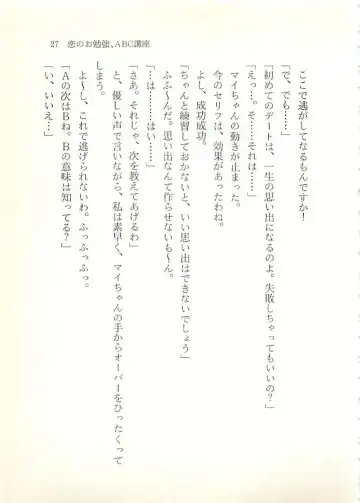 27 恋のお勉強、ABC講座
ここで逃がしてなるもんですか！
「で、でも……」
「初めてのデートは、一生の思い出になるのよ。失敗しちゃってもいいの？」
「えっ……。そ……それは……」
マイちゃんの動きが止まった。
今のセリフは、効果があったわね。
よし、成功成功。
「ちゃんと練習しておかないと、いい思い出はできないでしょう」
ふふ〜んだ。思い出なんて作らせないも〜ん。
「…は………はい……」
「さあ。それじゃ、次を教えてあげるわ」
と、優しい声で言いながら、私は素早く、マイちゃんの手からオーバーをひったくって
しまう。
よ〜し、これで逃げられないわ。ふっふっふっ。
「Aの次はBね。Bの意味は知ってる？」
「い、いいえ…」